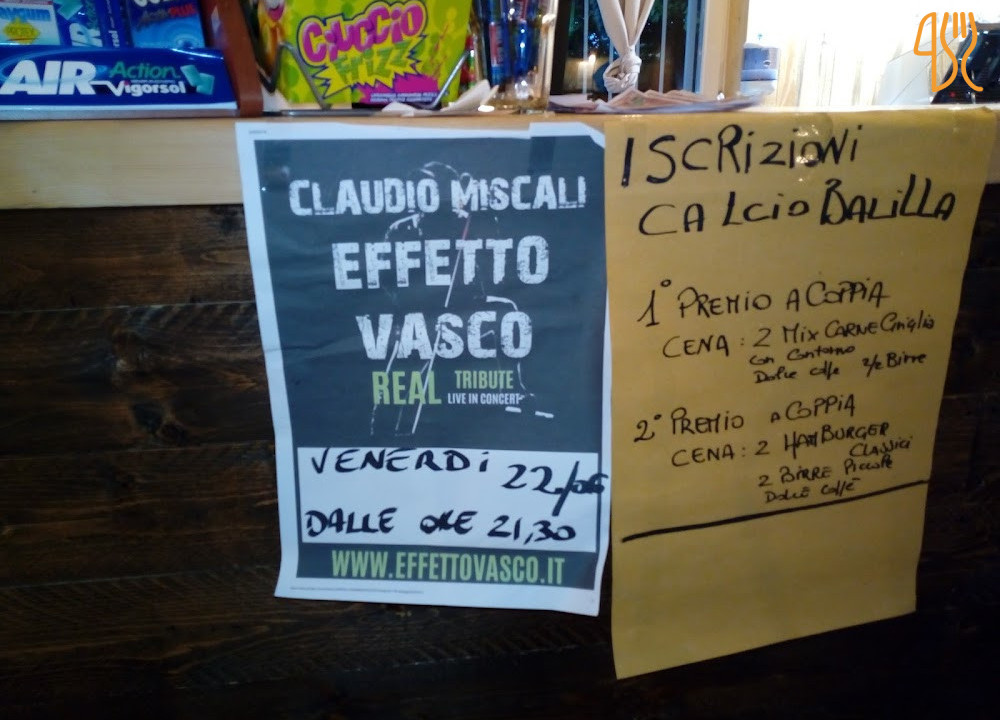 AIR Action
Vigorsol
CiUCCiO
FRiZZ
CLAUDIO MISCALI
EFFETTO
VASCO
REAL TRIBUTE
LIVE IN CONCERT
VENERDi 22/06
DALLE ORE 21,30
WWW.EFFETTOVASCO.IT
ISCRIZIONI
CALCIO BALILLA
1° PREMIO A COPPIA
CENA: 2 MIX CARNE Griglia
con contorno
Dolce caffe 2/e BIRRE
2° PREMIO A COPPIA
CENA: 2 HAMBURGER
CLASSICI
2 BIRRE Piccole
Dolce caffè